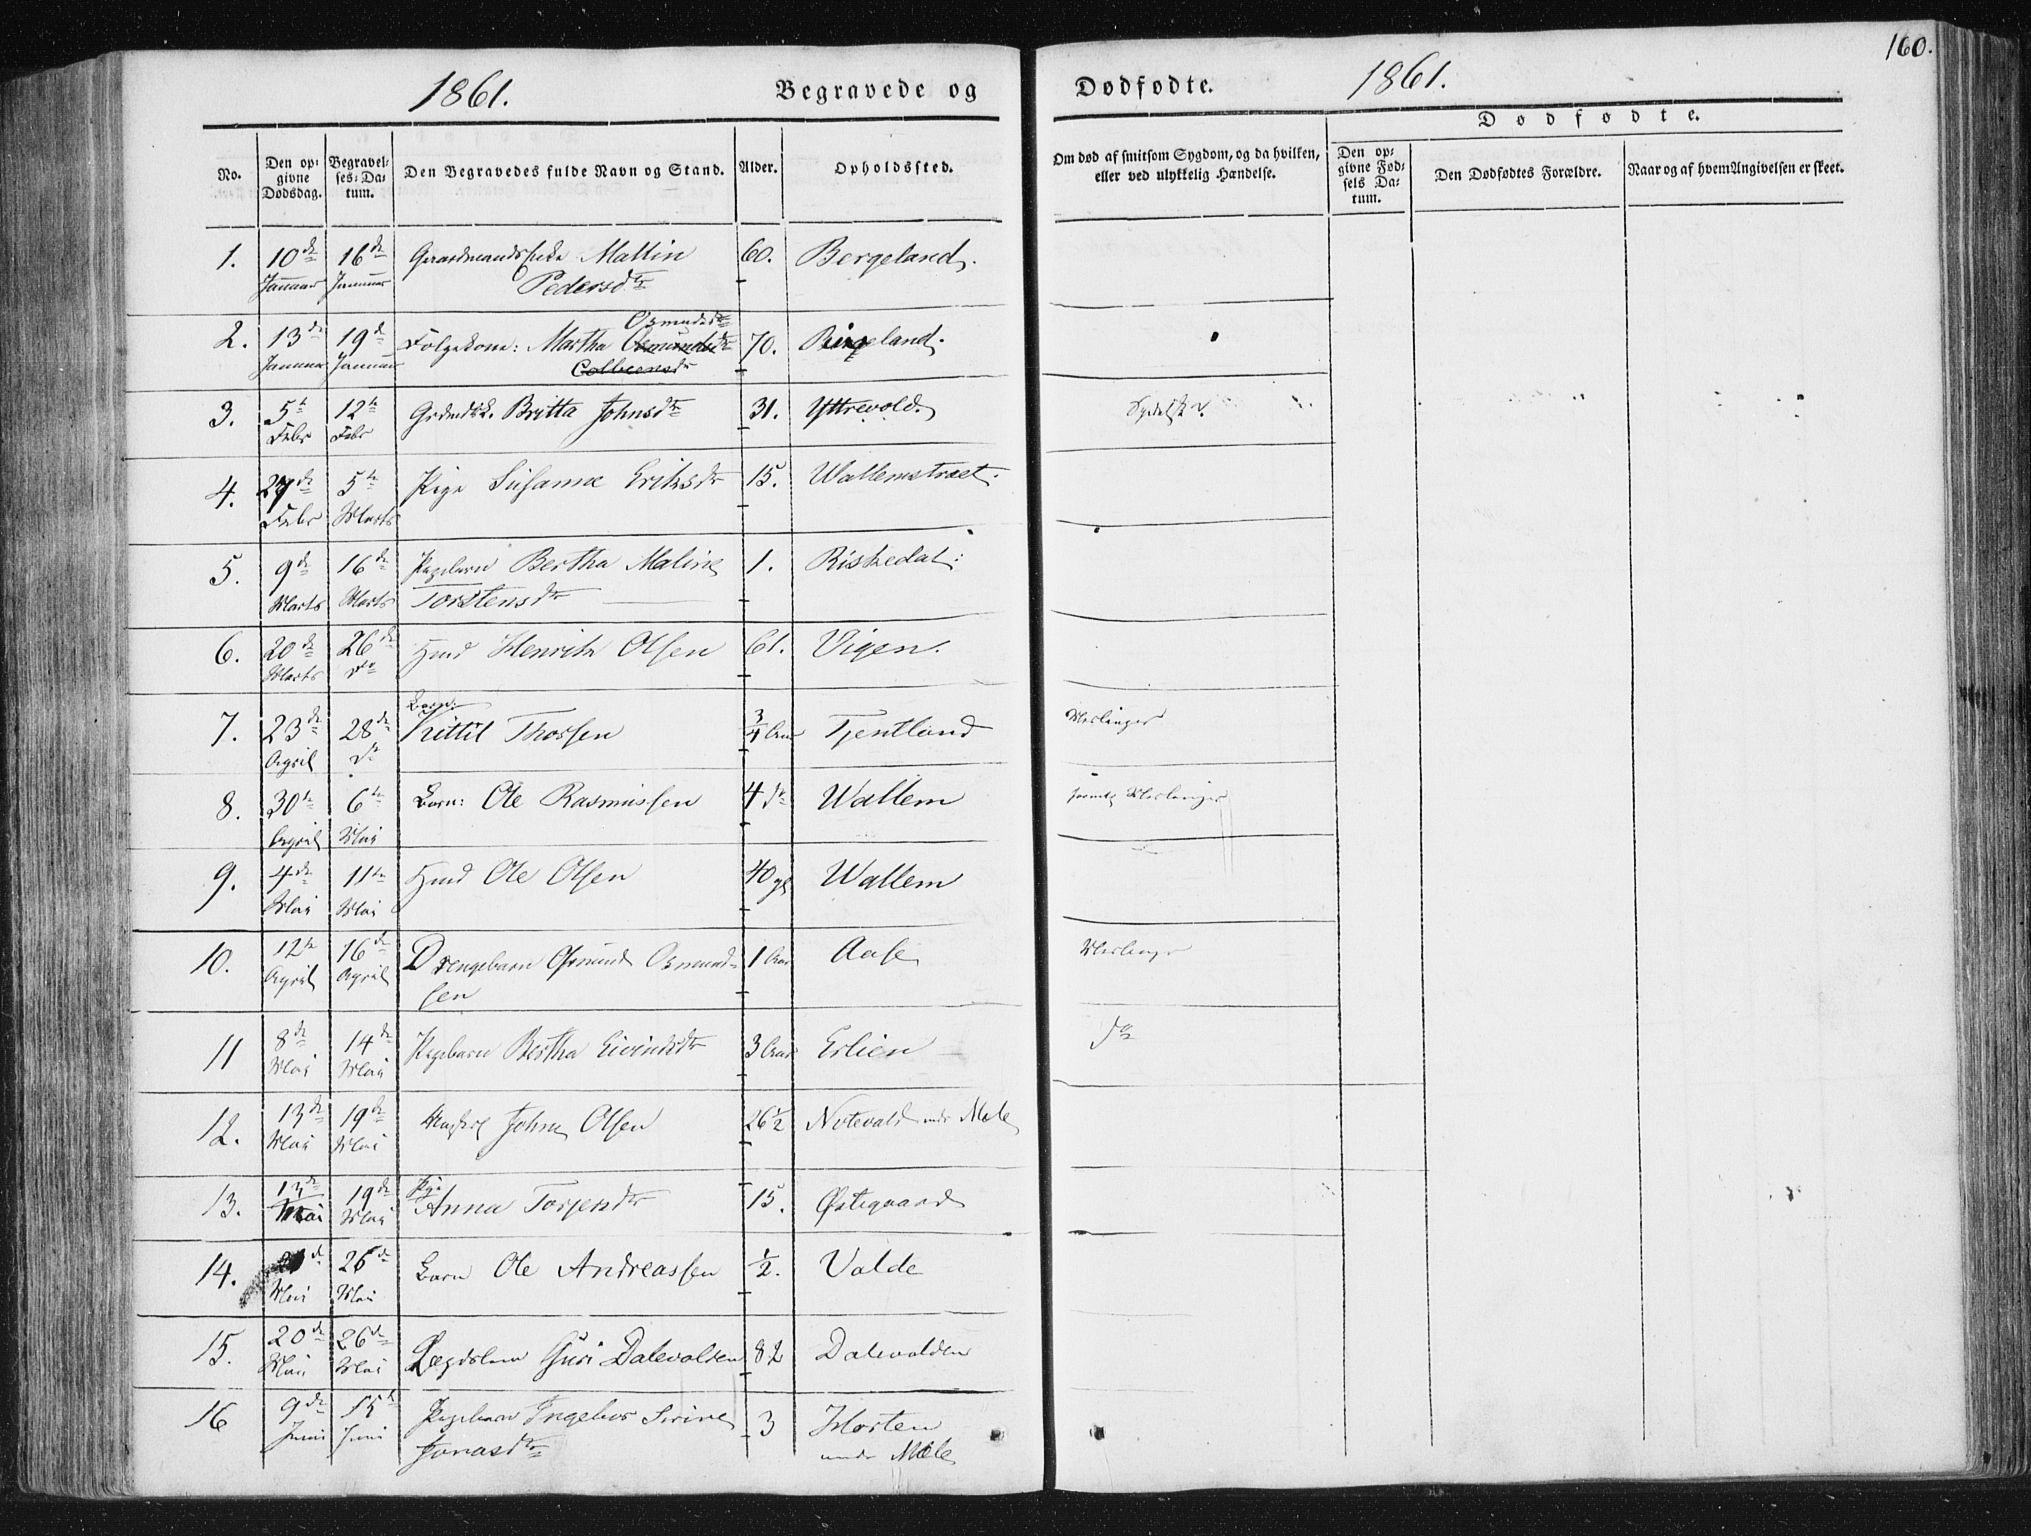 160.
1861. Begravede og Dødfødte. 1861.
Dødfødte.
No. Den opgivne Dødsdag. Begravelses-Datum. Den Begravedes fulde Navn og Stand. Alder. Opholdssted. Om død af smitsom Sygdom, og da hvilken, eller ved ulykkelig Hændelse. Den opgivne Fødsels Datum. Den Dødfødtes Forældre. Naar og af hvem Angivelsen er skeet.
1. 10de Januar 16de Januar Mallin 60. Bergeland.
Pedersdtr
Osmundsdtr
2. 13de Januar 19d Januar Følgekone: Martha 70. Bergeland.
3. 5te Febr 12te Febr Grdmdsk. Britta Johnsdtr 31. Yttrevold.
4. 27de Febr 5te Marts Pige Susanne Eriksdtr 15. Wallemstræet.
5. 9de Marts 16de Marts Pigebarn Bertha Maline 1. Riskedal:
Torstensdtr
6. 20de Marts 26de do Huusmd Henrik Olsen 61. Vigen.
Barn:
7. 23de April 28de do Kittil Thorsen 3/4 Aar Tjentland Meslinger
8. 30te April 6te Mai Barn: Ole Rasmussen 4 do Wallem Meslinger
9. 4de Mai 11te Mai Ole Olsen 40 Wallem
10. 12te April 16de April Drengebarn Osmund Osmund- 1 Aar Aase Meslinger
sen
11 8de Mai 14de Mai Pigebarn Bertha Eivindsdtr 3 Aar Erlien do
12. 13de Mai 19de Mai Ungkrl John Olsen 26 1/2 Notevald under Mæle
Pige
13. 13de Mai 19de Mai Anna Torjersdtr 15. Østegaard
14. Mai 26de Mai Barn Ole Andreassen 1/2. Valde
15. 20de Mai 26de Mai Lægdslem Guri Dalevolden 82 Dalevolden
16 9de Juni 15d Juni Pigebarn Ingebor Serine 3 Horten
Jonasdtr under Mæle